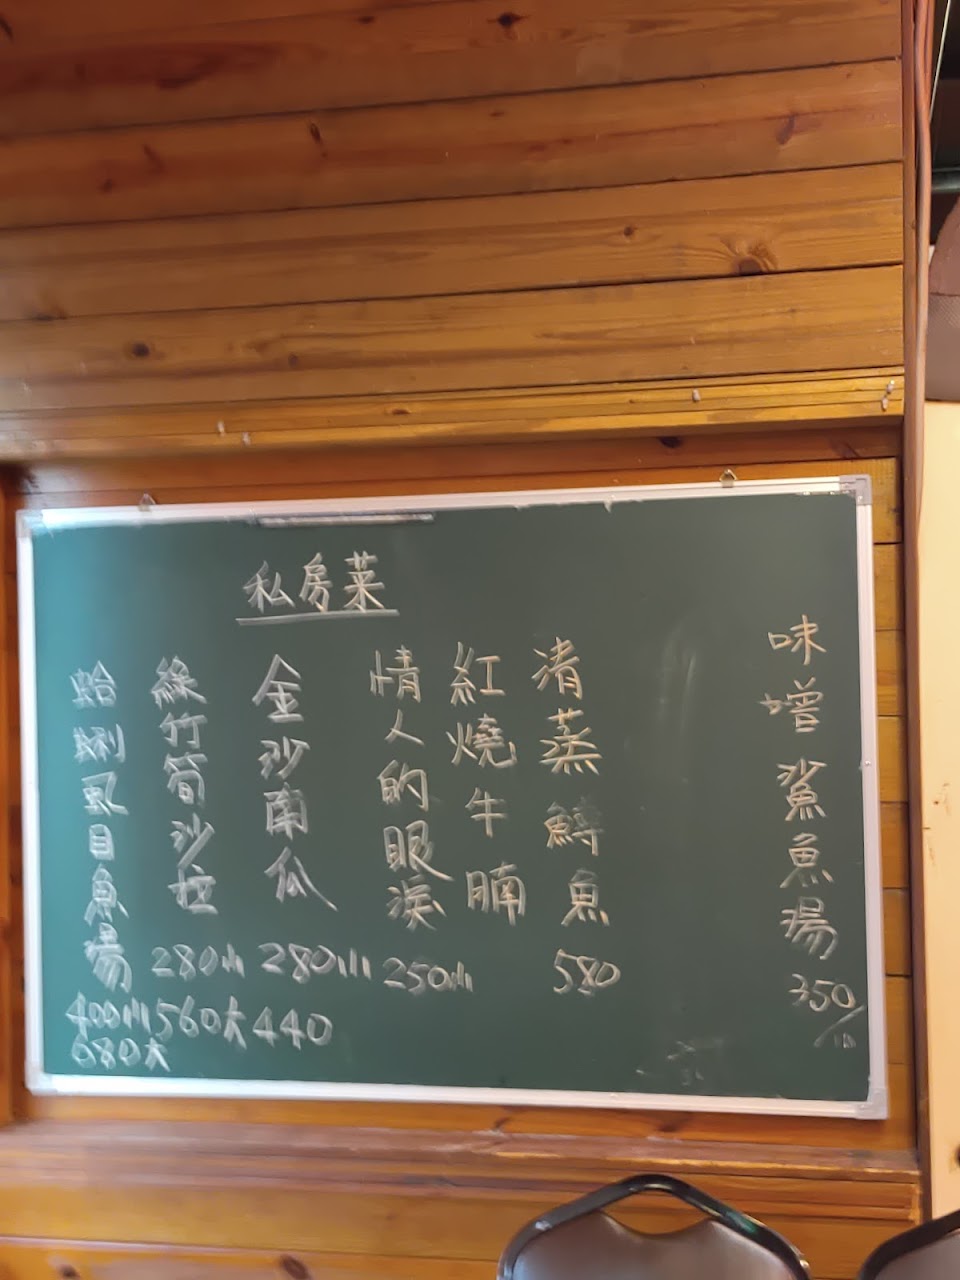 私房菜
味噌鯊魚湯
350/小
清蒸鱘魚
580
紅燒牛腩
情人的眼淚
250小
金沙南瓜
280小
440
綠竹筍沙拉
280小
560大
蛤蜊虱目魚湯
400小
680大